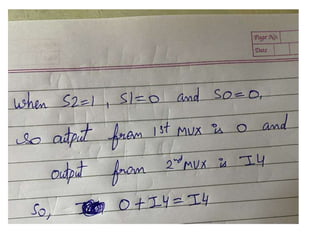 Page No.
Date
When S2=1, S1=0 and S0=0,
so output from 1st MUX is 0 and
output from 2nd MUX is I4
So, 0+I4=I4